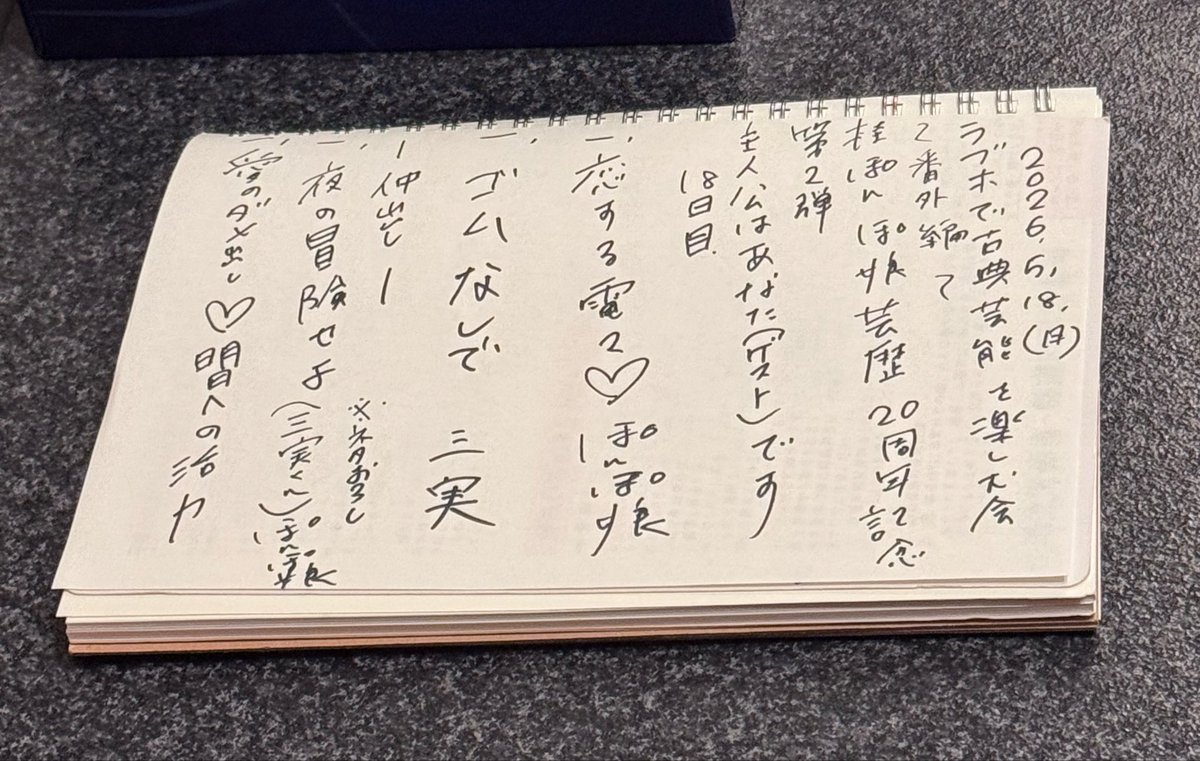 2026.5.18.(月)
ラブホで古典芸能を楽しむ会
2番外編て
桂ぽんぽ娘芸歴20周年記念
第2弾
主人公はあなた(ゲスト)です
18日目
一、恋する電マ♡ ぽんぽ娘
一、ゴムなしで 三実
ー仲出しー
※ネタおろし
一、夜の冒険せよ(三実くん)ぽんぽ娘
一、愛のダメ出し♡明日への活力